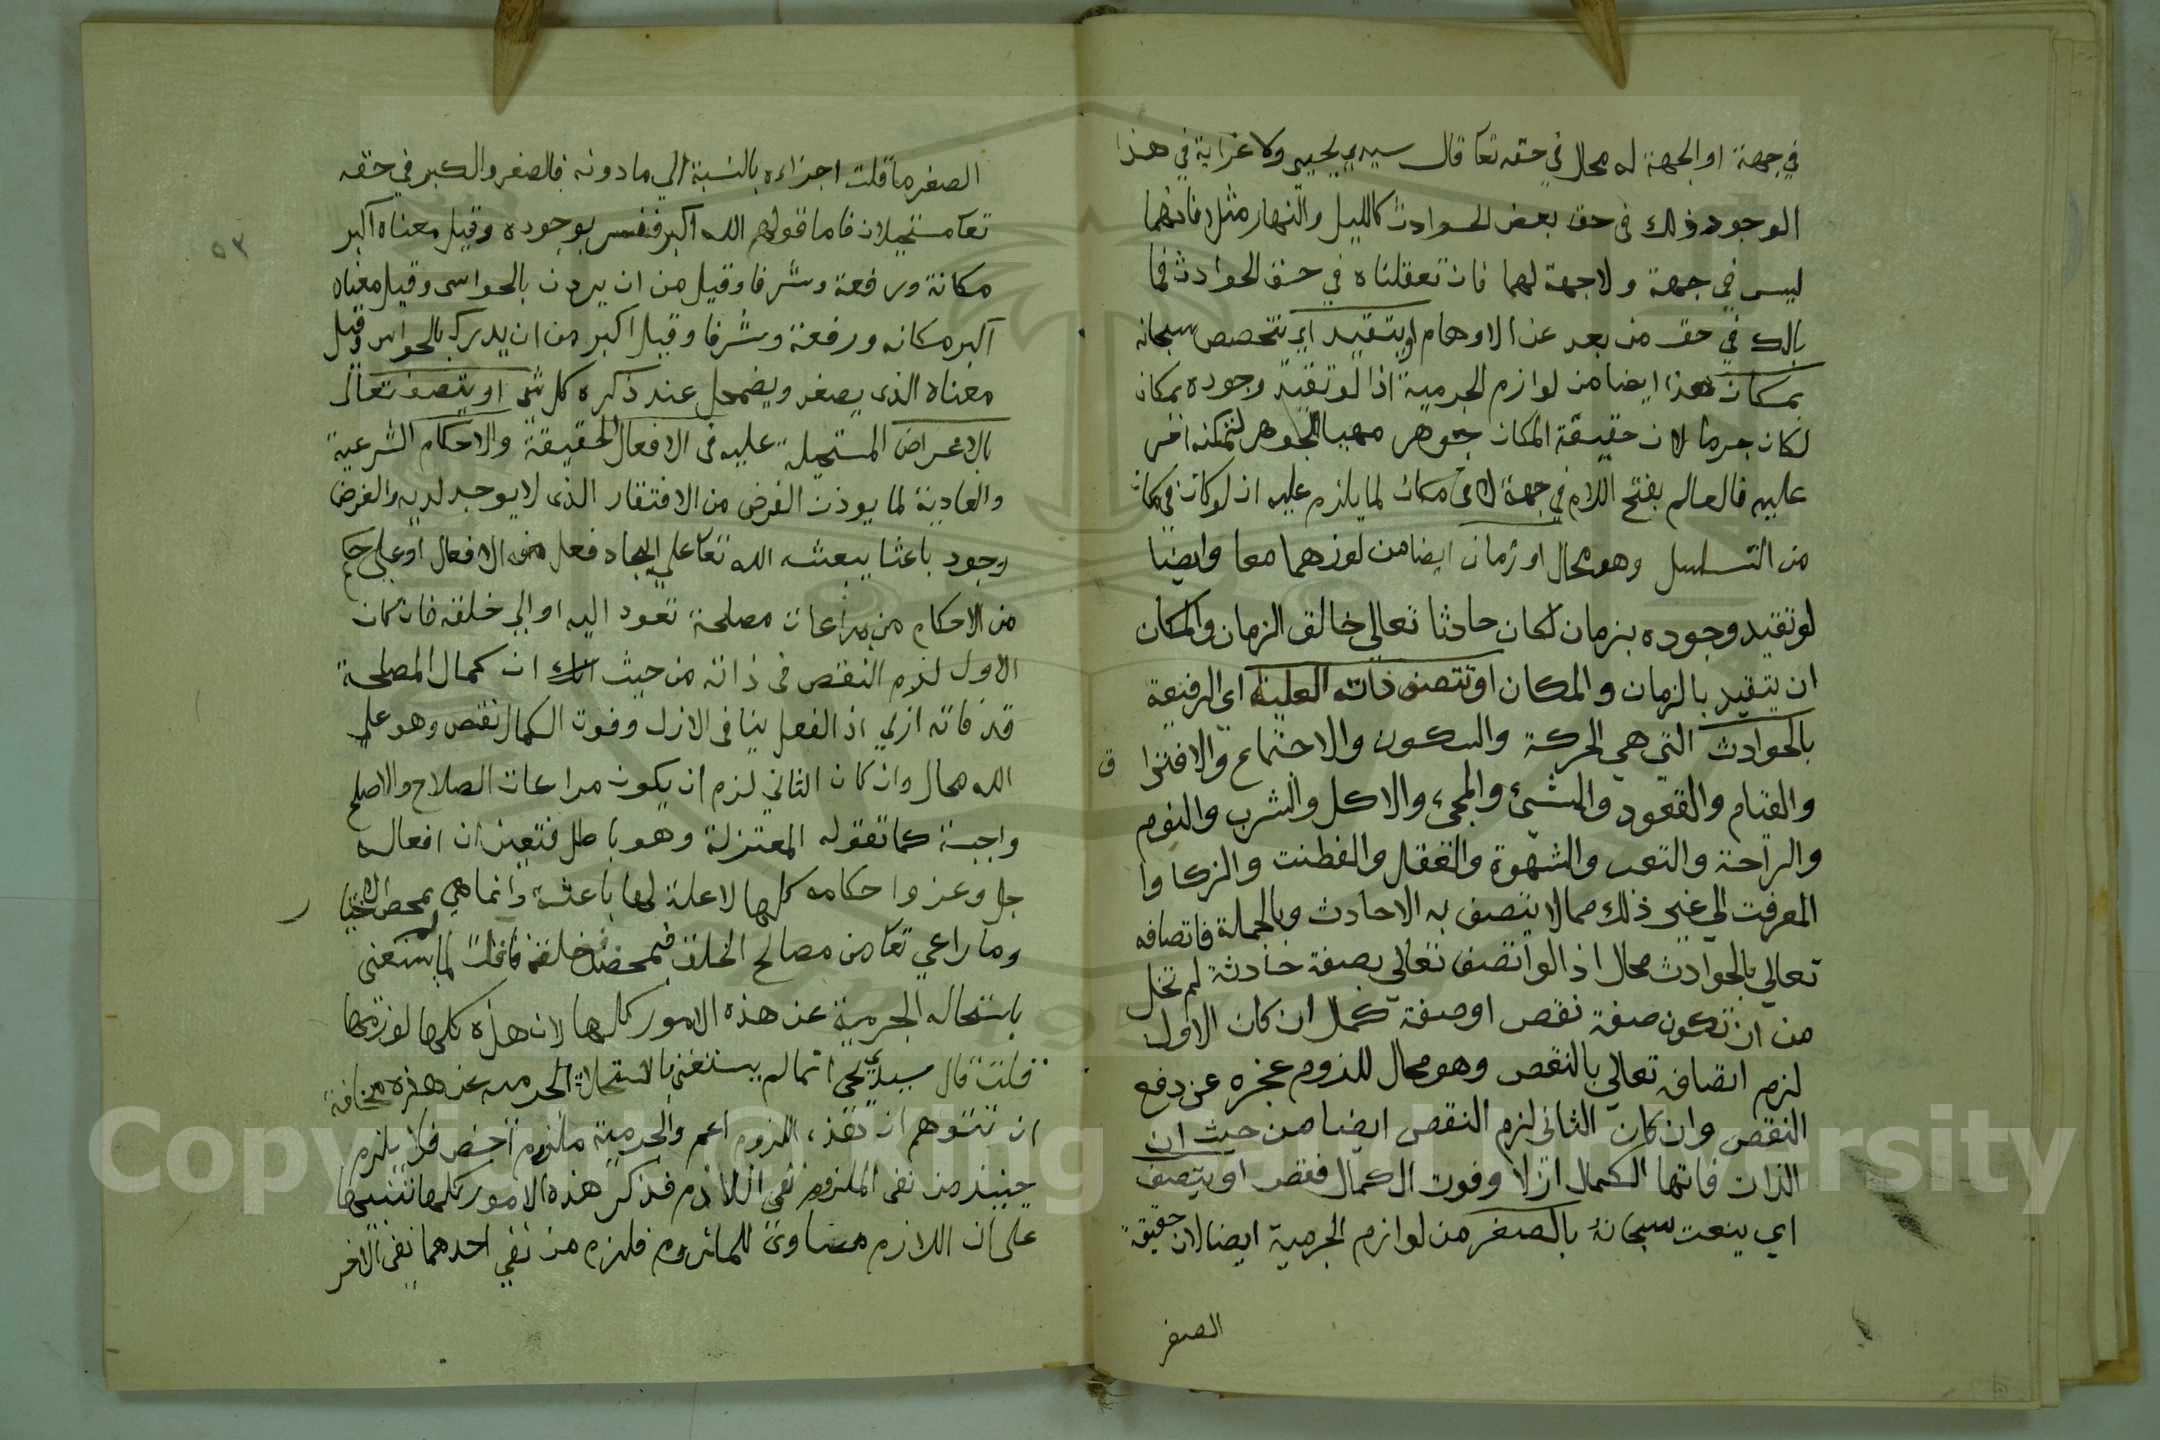 في جهة او الجهة له محال في حقه تعا قال سيدي يحيي ولا غرابة في هذا
الوجود ذلك في حق بعض الحوادث كالليل والنهار مثلا فانهما
ليس في جهة ولا جهة لهما فان تعقلناه في حق الحوادث فما
بالك في حق من بعد عن الاوهام او يتقيد اي يتخصص سبحانه
بمكان هذا ايضا من لوازم الجرمية اذ لو تقيد وجوده بمكان
لكان جرما لان حقيقة المكان جوهر مهيا لجوهر لتمكنه اخر
عليه فالعالم بفتح اللام في جهة لا في مكان لما يلزم عليه ان لو كان في مكان
من التسلسل وهو محال او زمان ايضا من لوزهما معا وايضا
لو تقيد وجوده بزمان لكان حادثا تعالي خالق الزمان والمكان
ان يتقيد بالزمان والمكان او تتصف ذاته العلية اي الرفيعة
بالحوادث التي هي الحركة والسكون والاجتماع والافترا
ق
والقيام والقعود والمشيئ والمجيء والاكل والشرب والنوم
والراحة والتعب والشهوة والتعقل والفطنت والزكا وا
المعرفت الي غير ذلك مما لا يتصف به الا حادث وبالجملة فاتصافه
تعالي بالحوادث محال اذ لو اتصف تعالي بصفة حادثة لم تخل
من ان تكون صفة نقص او صفة كمال ان كان الاول
لزم اتصافه تعالي بالنقص وهو محال للذوم عجزه عن دفع
النقص وان كان الثاني لزم النقص ايضا من حيث ان
الذات فاتها الكمال ازلا وفوت الكمال نقص او يتصف
اي ينعت سبحانه بالصغر من لوازم الجرمية ايضا لان حقيقة
الصغر
٥٣
الصغر ما قلت اجزاءه بالنسبة الي ما دونه فالصغر والكبر في حقه
تعا مستحيلان فاما قولهم الله اكبر ففسر بوجوده وقيل معناه اكبر
مكانة ورفعة وشرفا وقيل من ان يدرك بالحواس وقيل معناه
اكبر مكانه ورفعة وشرفا وقيل اكبر من ان يدرك بالحواس وقيل
معناه الذي يصغر ويضمحل عند ذكره كل شي او يتصف تعالى
بالاغراض المستحيلة عليه في الافعال الحقيقة والاحكام الشرعية
والعادية لما يوذن الغرض من الافتقار الذي لا يوجد لديه والغرض
وجود باعثا يبعثه الله تعا علي ايجاد فعل من الافعال او علي حكم
من الاحكام من مراعات مصلحة تعود اليه او الي خلقه فان كان
الاول لزم النقص في ذاته من حيث ان كمال المصلحة
قد فاته ازلي اذ الفعل ينافي الازل وفوت الكمال نقص وهو علي
الله محال وان كان الثاني لزم ان يكون مراعات الصلاح والاصلح
واجبة كما تقوله المعتزلة وهو باطل فتعين ان افعاله
جل وعز واحكامه كلها لا علة لها باعثة وانما هي بمحض الاختيا
ر
وما راعي تعا من مصالح الخلق فبمحض خلقه فان قلت لم لم يستغني
باستحاله الجرمية عن هذه الامور كلها لان هذه كلها لوزمها
قلت قال سيدي يحي انما لم يستغني بالاستحالة الجرمية عن هذه مخافة
ان تتوهم ان هذه اللزوم اعم والجرمية ملزوم اخص فلا يلزم
حينيذ من نفى الملزوم نفي اللازم فذكر هذه الامور كلها تنبيها
على ان اللازم مساوى للملزوم فلزم من نفي احدهما نفي الاخر
Copyright © King Saud University